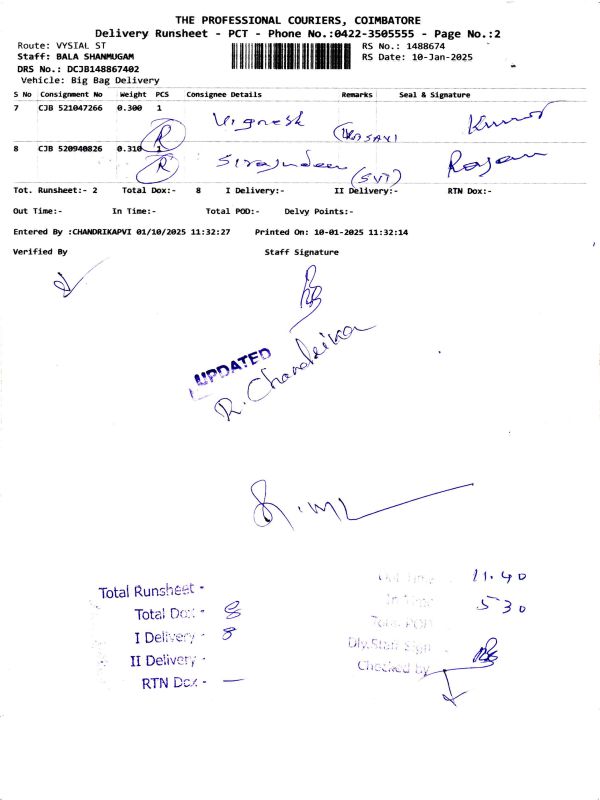 THE PROFESSIONAL COURIERS, COIMBATORE
Delivery Runsheet - PCT - Phone No.:0422-3505555 - Page No.:2
Route: VYSIAL ST RS No.: 1488674
Staff: BALA SHANMUGAM RS Date: 10-Jan-2025
DRS No.: DCJB148867402
Vehicle: Big Bag Delivery
S No Consignment No Weight PCS Consignee Details Remarks Seal & Signature
7 CJB 521047266 0.300 1 Vignesh Kumar
R
8 CJB 520940826 0.310 1 Sirajudeen (SVT) Rajan
R
Tot. Runsheet:- 2 Total Dox:- 8 I Delivery:- II Delivery:- RTN Dox:-
Out Time:- In Time:- Total POD:- Delvy Points:-
Entered By :CHANDRIKAPVI 01/10/2025 11:32:27 Printed On: 10-01-2025 11:32:14
Verified By Staff Signature
UPDATED
R. Chandrika
Total Runsheet - Out Time - 11.40
Total Dox - 8 In Time - 530
I Delivery - 8 Total POD
II Delivery - Dly.Staff Sign
RTN Dox - — Checked by